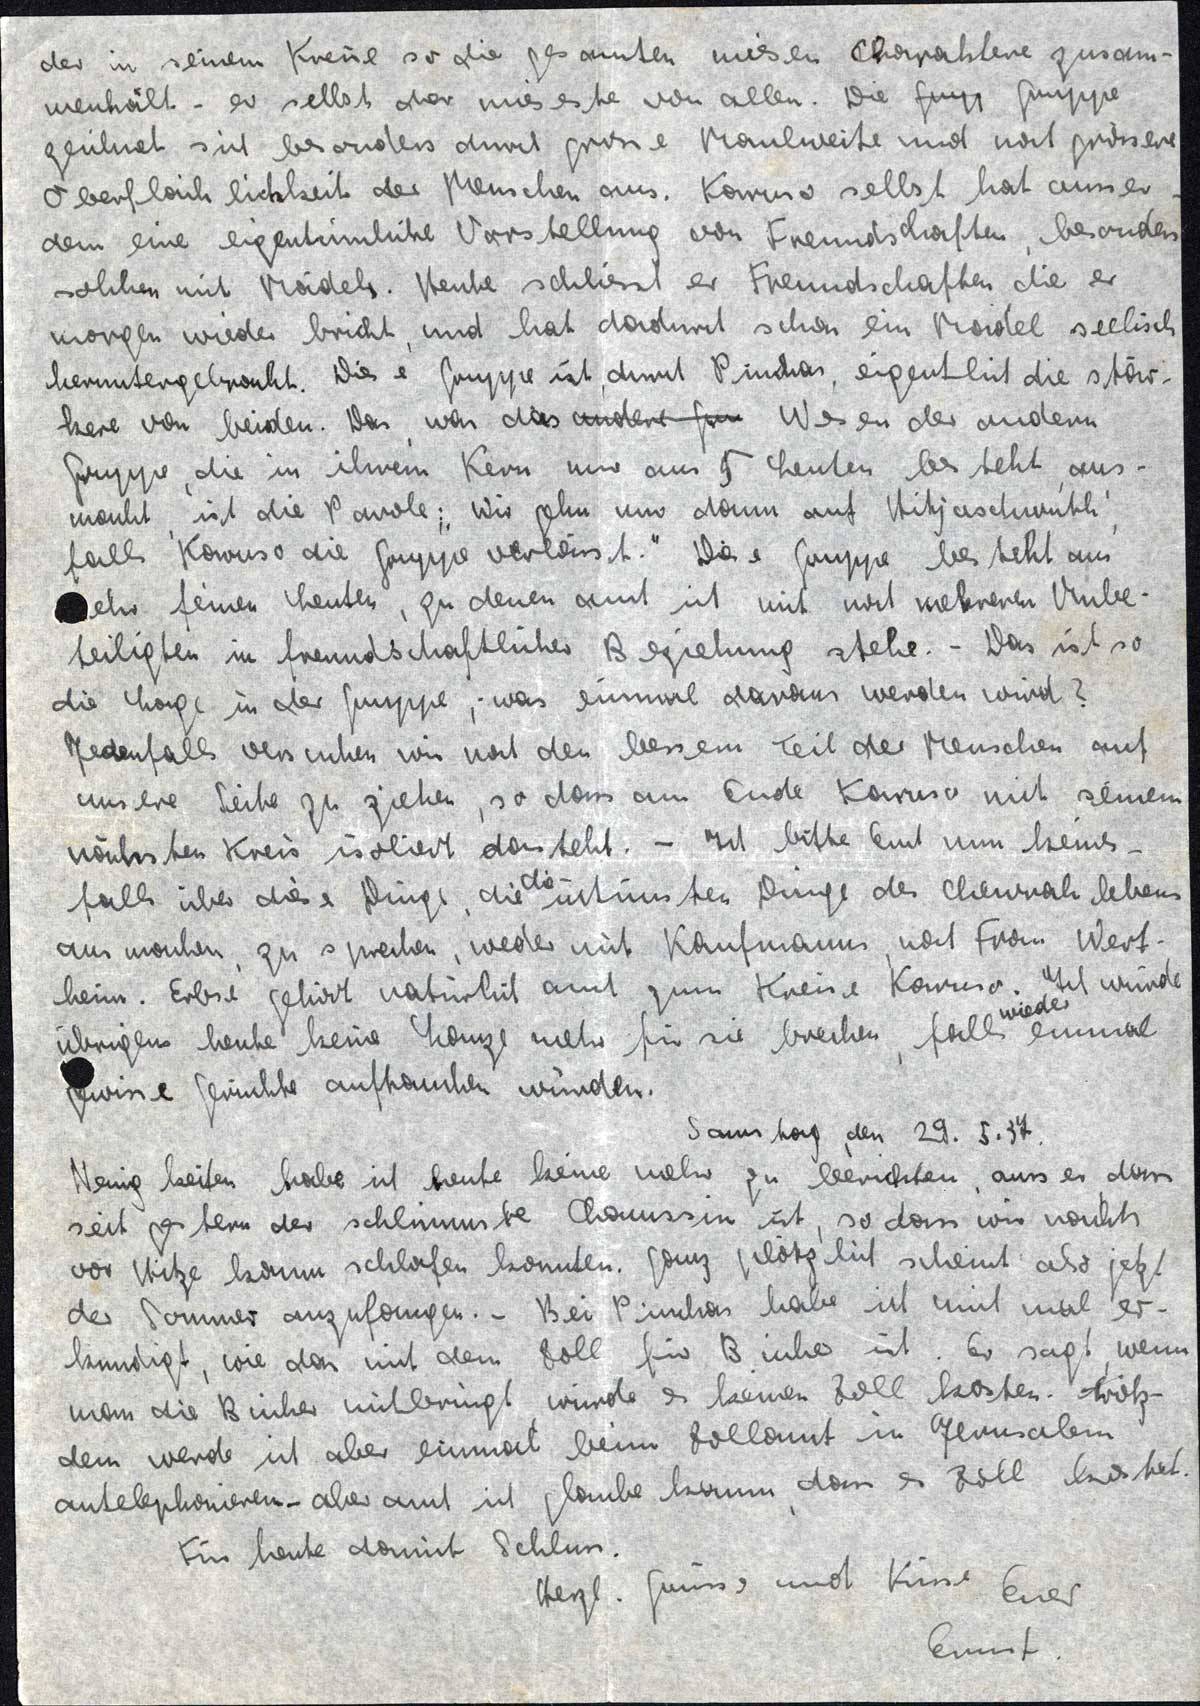 der in seinem Kreise so die gesamten miesen Charaktere zusam-
menhält - er selbst der mieseste von allen. Die Grupp Gruppe
zeichnet sich besonders durch grosse Maulweite und noch grössere
Oberflächlichkeit der Menschen aus. Karuso selbst hat ausser-
dem eine eigentümliche Vorstellung von Freundschaften, besonders
solchen mit Mädels. Heute schliesst er Freundschaften die er
morgen wieder bricht, und hat dadurch schon ein Mädel seelisch
heruntergebracht. Diese Gruppe ist, durch Pinchas, eigentlich die stär-
kere von beiden. Das, was das andere Gru Wesen der andern
Gruppe, die in ihrem Kern nur aus 5 Leuten besteht, aus-
macht, ist die Parole: "Wir gehn nur dann auf Hitjaschwuth,
falls Karuso die Gruppe verlässt." Diese Gruppe besteht aus
sehr feinen Leuten, zu denen auch ich mit noch mehreren Unbe-
teiligten in freundschaftlicher Beziehung stehe. - Das ist so
die Lage in der Gruppe, - was einmal daraus werden wird?
Jedenfalls versuchen wir noch den bessern Teil der Menschen auf
unsere Seite zu ziehen, so dass am Ende Karuso mit seinem
nächsten Kreis isoliert dasteht. - Ich bitte Euch nun keines-
falls über diese Dinge, die die intimsten Dinge des Chewrahlebens
ausmachen, zu sprechen, weder mit Kaufmanns, noch Frau Wert-
heim. Erbse gehört natürlich auch zum Kreise Karuso. Ich würde
übrigens heute keine Lanze mehr für sie brechen, falls wieder einmal
gewisse Gerüchte auftauchen würden.
Samstag, den 29. 5. 37.
Neuigkeiten habe ich heute keine mehr zu berichten, ausser dass
seit gestern der schlimmste Chamssin ist, so dass wir nachts
vor Hitze kaum schlafen konnten. Ganz plötzlich scheint also jetzt
der Sommer anzufangen. - Bei Pinchas habe ich mich mal er-
kundigt, wie das mit dem Zoll für Bücher ist. Er sagt, wenn
man die Bücher mitbringt, würde es keinen Zoll kosten. Trotz-
dem werde ich aber einmal beim Zollamt in Jerusalem
antelephonieren - aber auch ich glaube kaum, dass es Zoll kostet.
Für heute damit Schluss.
Herzl. Grüsse und Küsse Euer
Ernst.